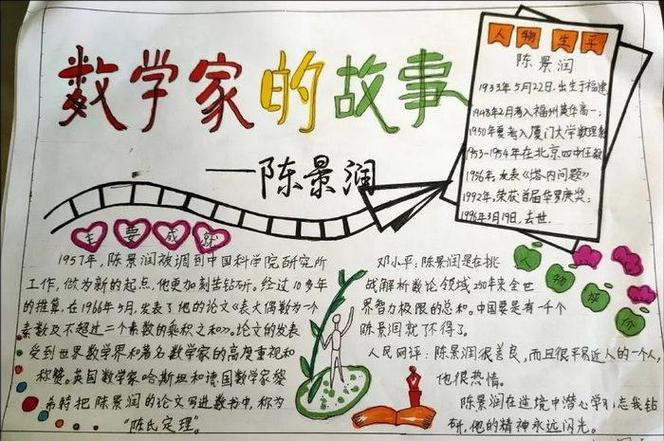 数学家的故事
——陈景润
人物生平
陈景润
1933年5月22日.出生于福建
1948年2月考入福州英华高一;
1950年夏考入厦门大学数理系
1953-1954年在北京四中任教
1956年,发表《塔内问题》
1992年,荣获首届华罗庚奖;
1996年3月19日.去世.
主要成就
1957年,陈景润被调到中国科学院研究所
工作,做为新的起点,他更加刻苦钻研。经过10多年
的推算,在1966年5月,发表了他的论文《表大偶数为一个
素数及不超过二个素数的乘积之和》。论文的发表
受到世界数学界和著名数学家的高度重视和
称赞。英国数学家哈斯坦和德国数学家黎
希特把陈景润的论文写进数书中,称为
“陈氏定理”。
人物评介
邓小平:陈景润是在挑
战解析数论领域250年来全世
界智力极限的总和。中国要是有一千个
陈景润就不得了。
人民网评:陈景润很善良,而且很平易近人的一个人,
他很热情。
陈景润在逆境中潜心学习忘我钻
研,他的精神永远闪光。